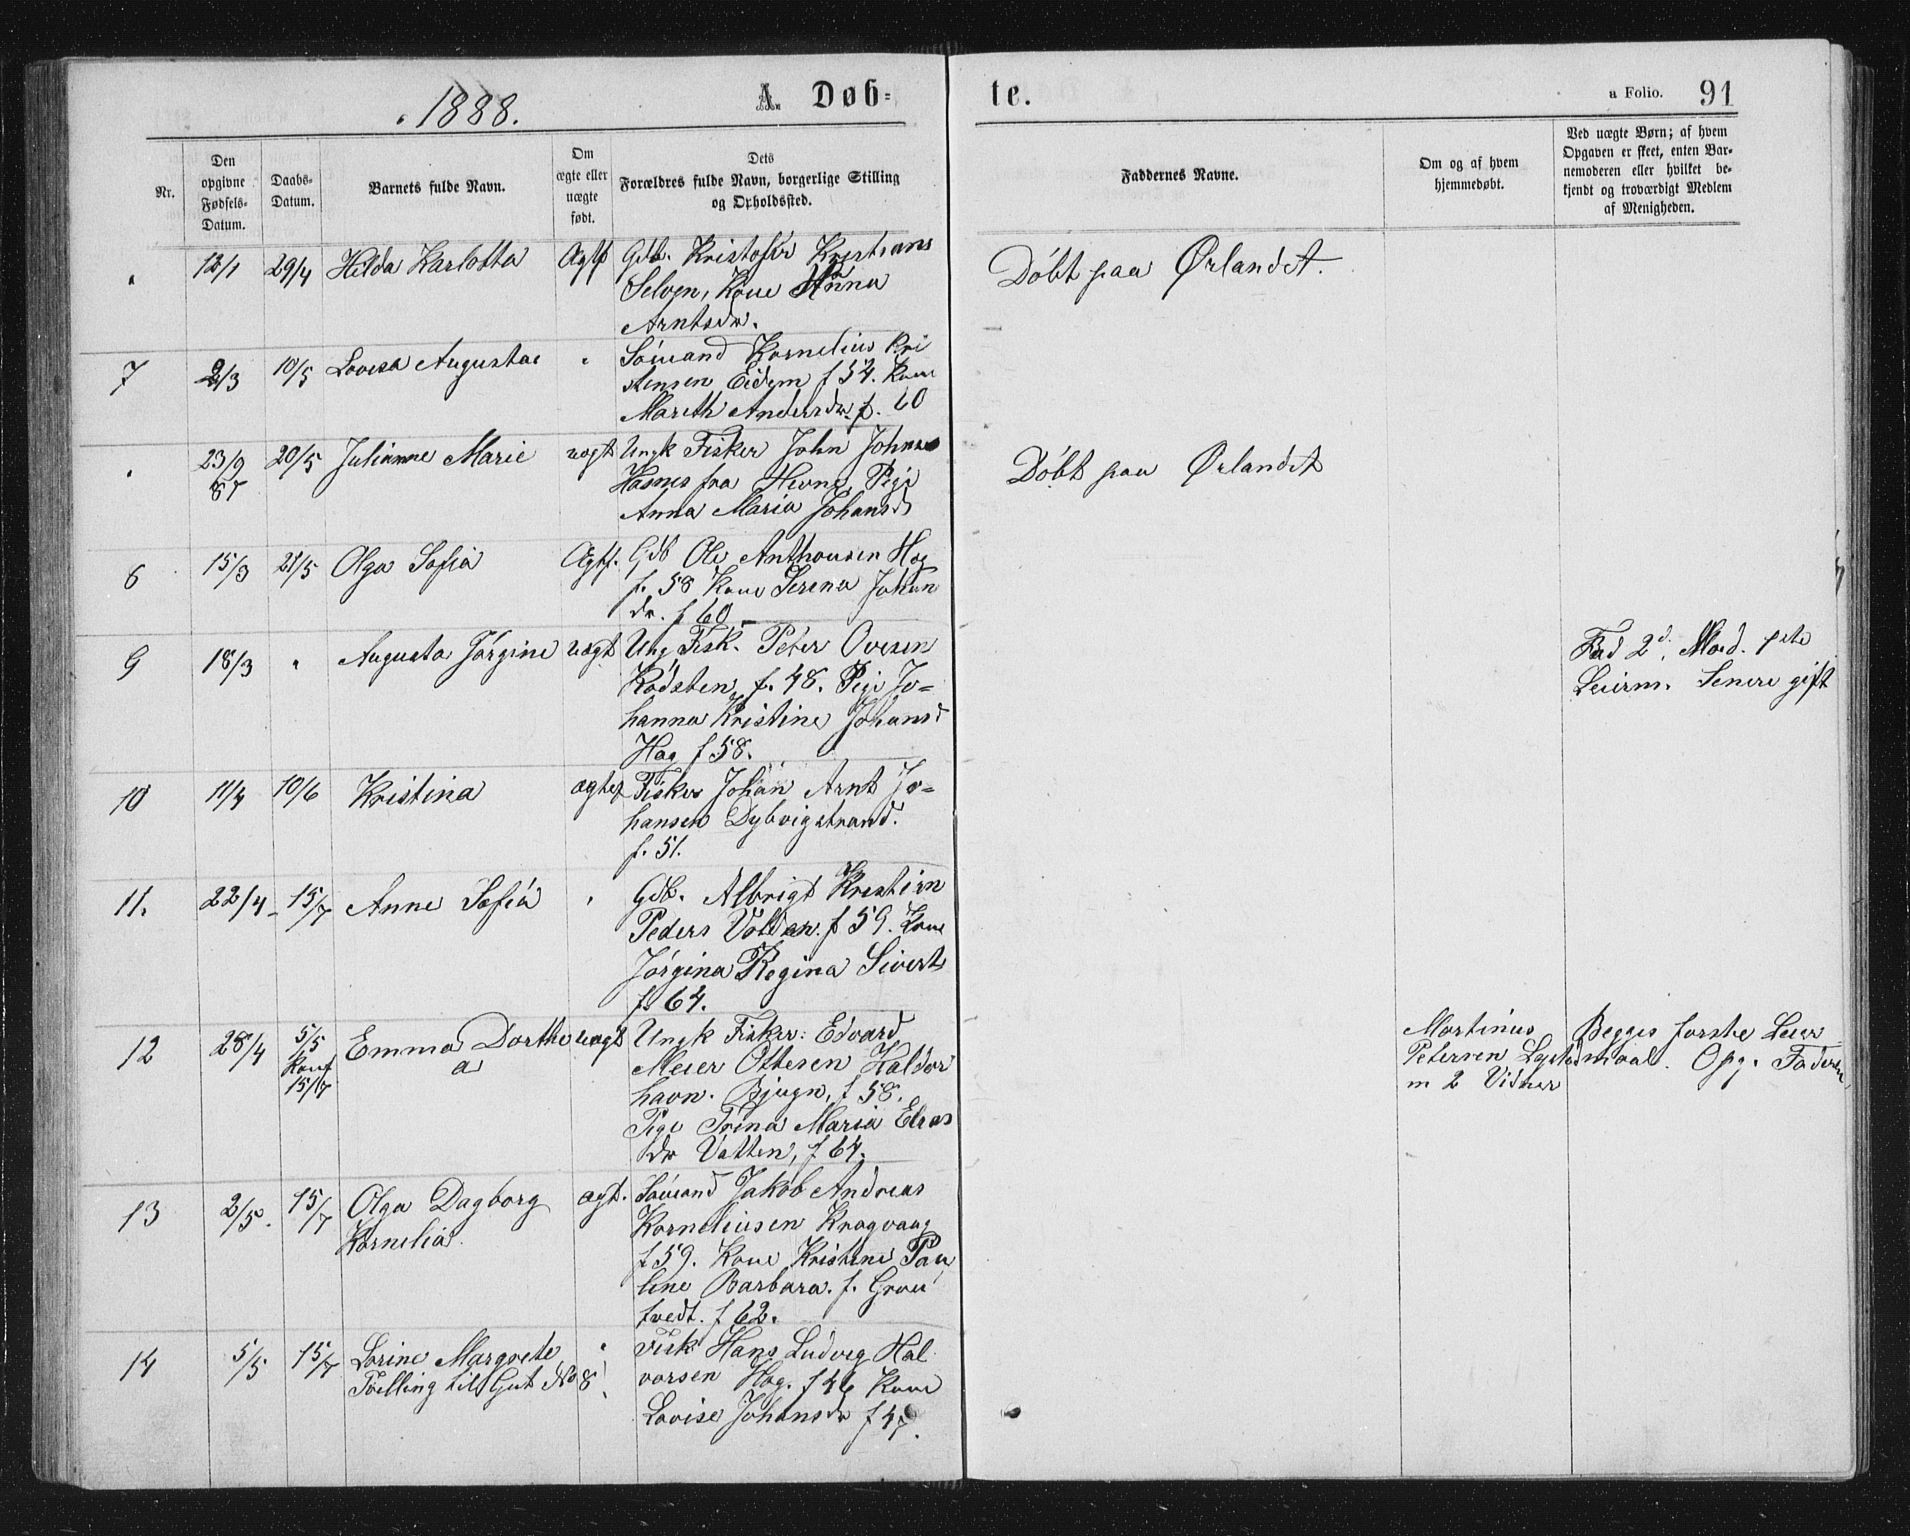 1888.
A. Døb-
te.
a Folio. 91
Nr.
Den
opgivne
Fødsels-
Datum.
Daabs-
Datum.
Barnets fulde Navn.
Om
ægte eller
uægte
født.
Dets
Forældres fulde Navn, borgerlige Stilling
og Opholdssted.
Faddernes Navne.
Om og af hvem
hjemmedøbt.
Ved uægte Børn; af hvem
Opgaven er skeet, enten Bar-
nemoderen eller hvilket be-
kjendt og troværdigt Medlem
af Menigheden.
" 12/1 29/4 Hilda Karlotta Ægtf Gdb. Kristofer Kristians
Selven, Kone Anna
Arntsdr.
Døbt paa Ørlandet.
7 2/3 10/5 Lovisa Augusta " Sømand Kornelius Kri
stensen Eidem f 54. Kone
Mareth Andersdr. f. 60
" 23/9 87 20/5 Julianne Marie uægt Ungk Fisker John Johns
Hasnes fra Hevne, Pige
Anna Maria Johansd
Døbt paa Ørlandet
6 15/3 21/5 Olga Sofia Ægtf. Gdb Ole Anthonsen Hog
f. 58 Kone Serena Johan
dr. f 60
9 18/3 " Augusta Jørgine uægt Ung Fisk. Peter Ovesen
Rødsten f. 48. Pige Jo-
hanna Kristine Johansd
Hog f 58.
Fad 2d. Mod. 1ste
Leierm. Senere gift
10 11/4 10/6 Kristina ægtef Fisker Johan Arnt Jo-
hansen Dybvigstrand.
f. 51.
11. 22/4 15/7 Anne Sofia " Gdb. Albrigt Kristian
Peders Volden. f 59. Kone
Jørgina Regina Sivert
f. 64.
12 28/4 5/5 Konf 15/7 Emma Dorthe a uægt Ungk Fisker: Edvard
Meier Ottesen Valdør
havn. Bjugn, f 58.
Pige Trina Maria Elias
dr Vatten, f 64.
Martinus
Petersen
m 2 Vidner
Begges første Leier
maal. Opg. Faderen
13 2/5. 15/7 Olga Dagborg
Kornelia ægt. Sømand Jakob Andreas
Korneliusen Kragvaag
f 59. Kone Kristine Pau
line Barbara. f. Grøn
tvedt. f 62.
14 5/5 15/7 Lorine Margrete
Tvilling til Gut No 8 " Fisk Hans Ludvig Hal
vorsen Hog. f 46 Kone
Lovise Johansdr f 47.